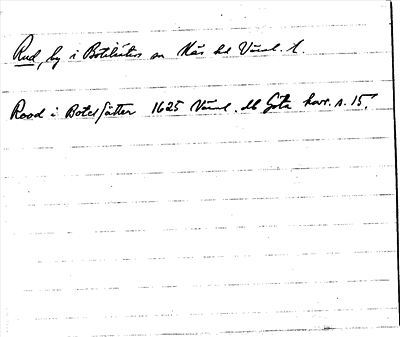 Rud, by i Botilsäter sn Näs hd Värml. l.
Rood i Botelsätter 1625 Värml. db Göta hovr. s. 15.